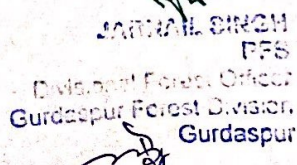 JARNAIL SINGH
PFS
Divisional Forest Officer
Gurdaspur Forest Division,
Gurdaspur